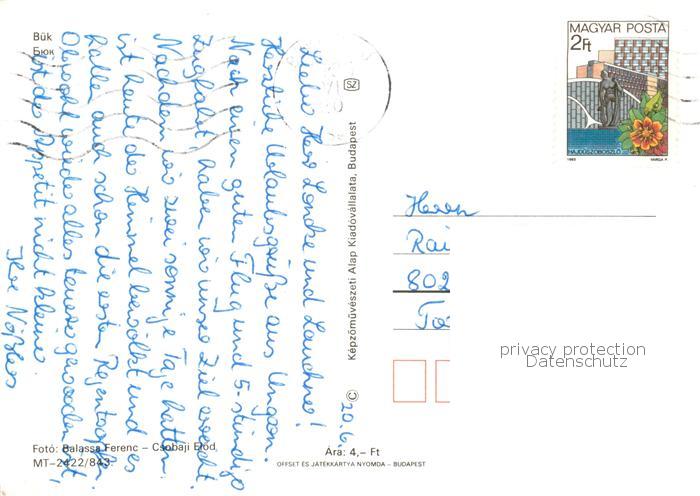 Bük
Бюк
MAGYAR POSTA
2Ft
HAJDÚSZOBOSZLÓ
1983 VARGA P.
SZ
Képzőművészeti Alap Kiadóvállalata, Budapest
©
20.6.
Liebe Herr und
Herzliche Urlaubsgrüße aus Ungarn.
Nach einem guten Flug und 5-stündige
Zugfahrt haben wir unser Ziel erreicht.
Nachdem wir zwei sonnige Tage hatten
ist heute der Himmel bewölkt und es
fallen auch schon die ersten Regentropfen.
Obwohl wieder alles teurer geworden ist,
ist der Appetit nicht kleiner
Ilse
Herrn
Rai
802
privacy protection
Datenschutz
Fotó: Balassa Ferenc – Csobaji Előd
MT-2422/843.
Ára: 4,– Ft
OFFSET ÉS JÁTÉKKÁRTYA NYOMDA – BUDAPEST